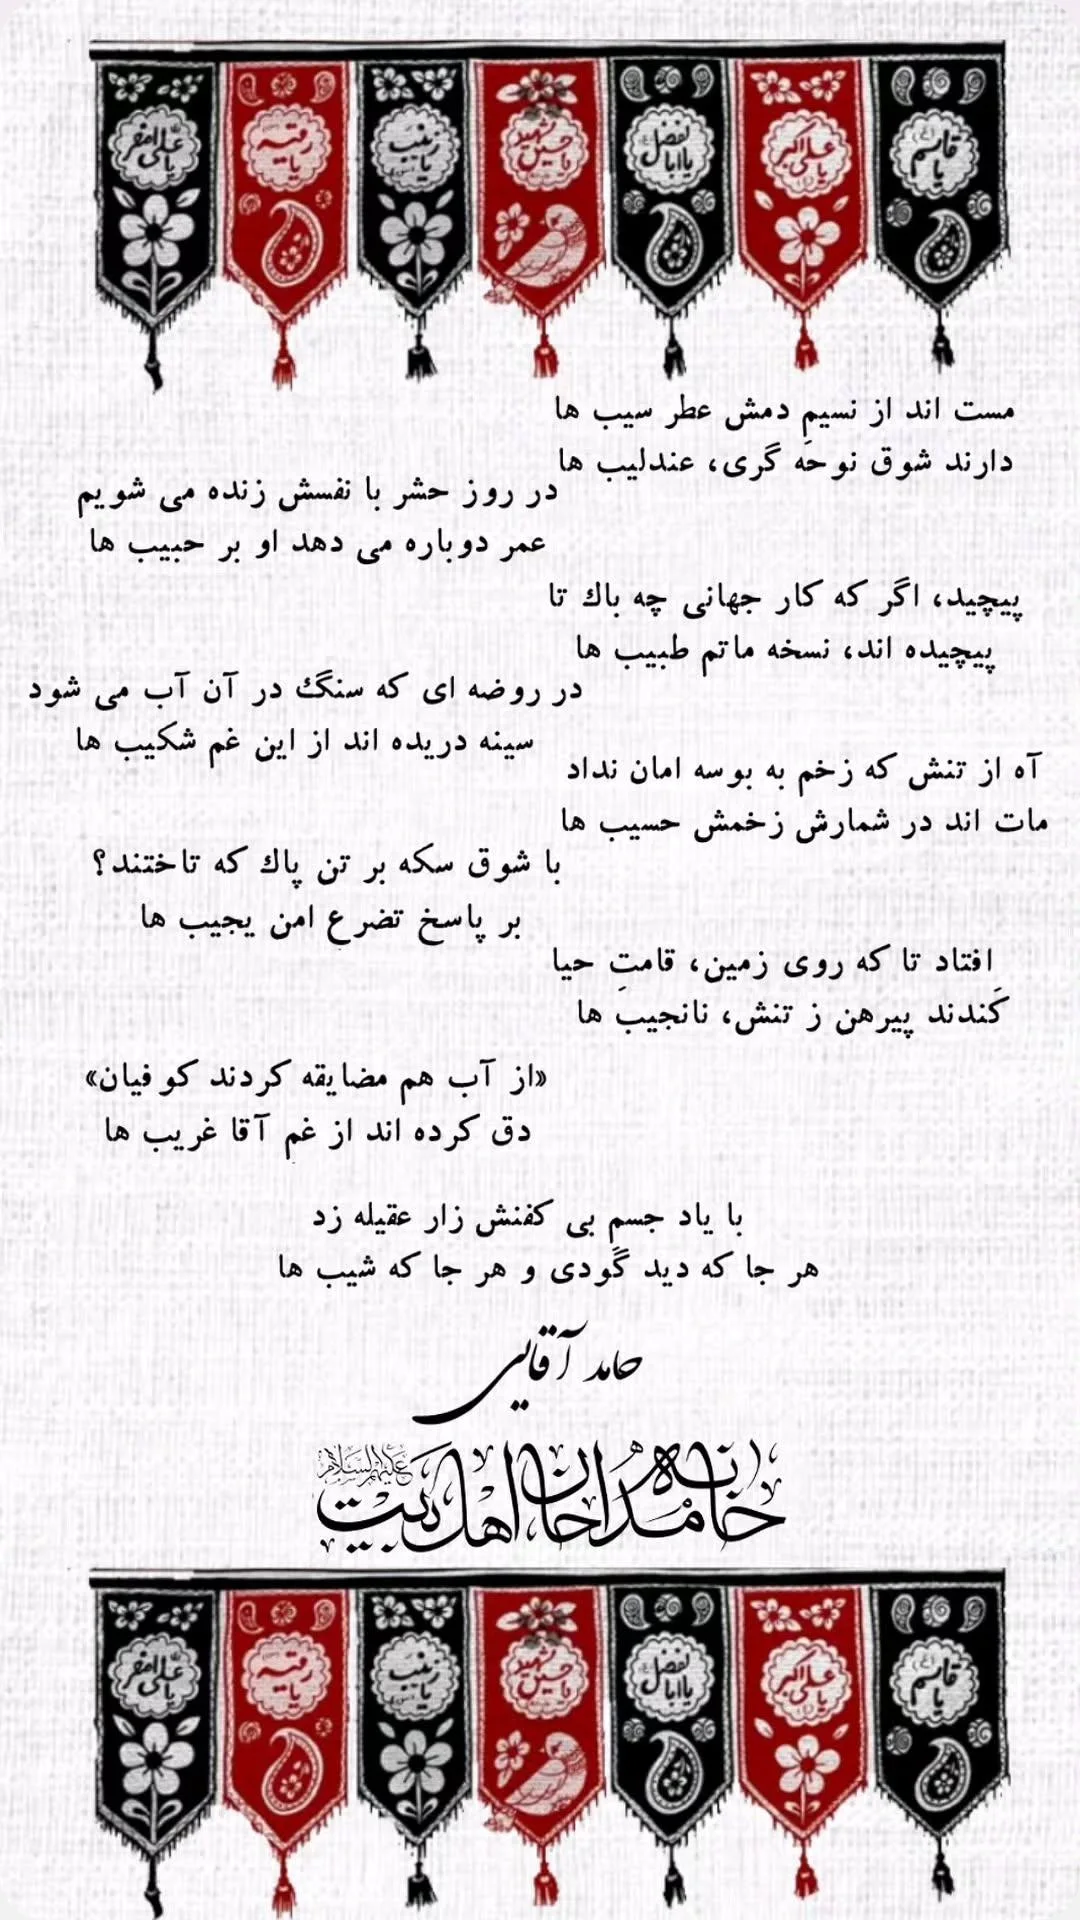 یا قاسم
یا علی اکبر
یا اباالفضل
یا حسین شهید
یا زینب
یا رقیه
یا علی اصغر
مست اند از نسیمِ دمش عطر سیب ها
دارند شوق نوحه گری، عندلیب ها
در روز حشر با نفسش زنده می شویم
عمر دوباره می دهد او بر حبیب ها
پیچید، اگر که کار جهانی چه باك تا
پیچیده اند، نسخه ماتم طبیب ها
در روضه ای که سنگ در آن آب می شود
سینه دریده اند از این غم شکیب ها
آه از تنش که زخم به بوسه امان نداد
مات اند در شمارش زخمش حسیب ها
با شوق سکه بر تن پاك که تاختند؟
بر پاسخ تضرع امن یجیب ها
افتاد تا که روی زمین، قامتِ حیا
کَندند پیرهن ز تنش، نانجیب ها
«از آب هم مضایقه کردند کوفیان»
دق کرده اند از غمِ آقا غریب ها
با یاد جسمِ بی کفنش زار عقیله زد
هر جا که دید گودی و هر جا که شیب ها
حامد آقایی
خانه مداحان اهل بیت علیهم السلام
یا قاسم
یا علی اکبر
یا اباالفضل
یا حسین شهید
یا زینب
یا رقیه
یا علی اصغر